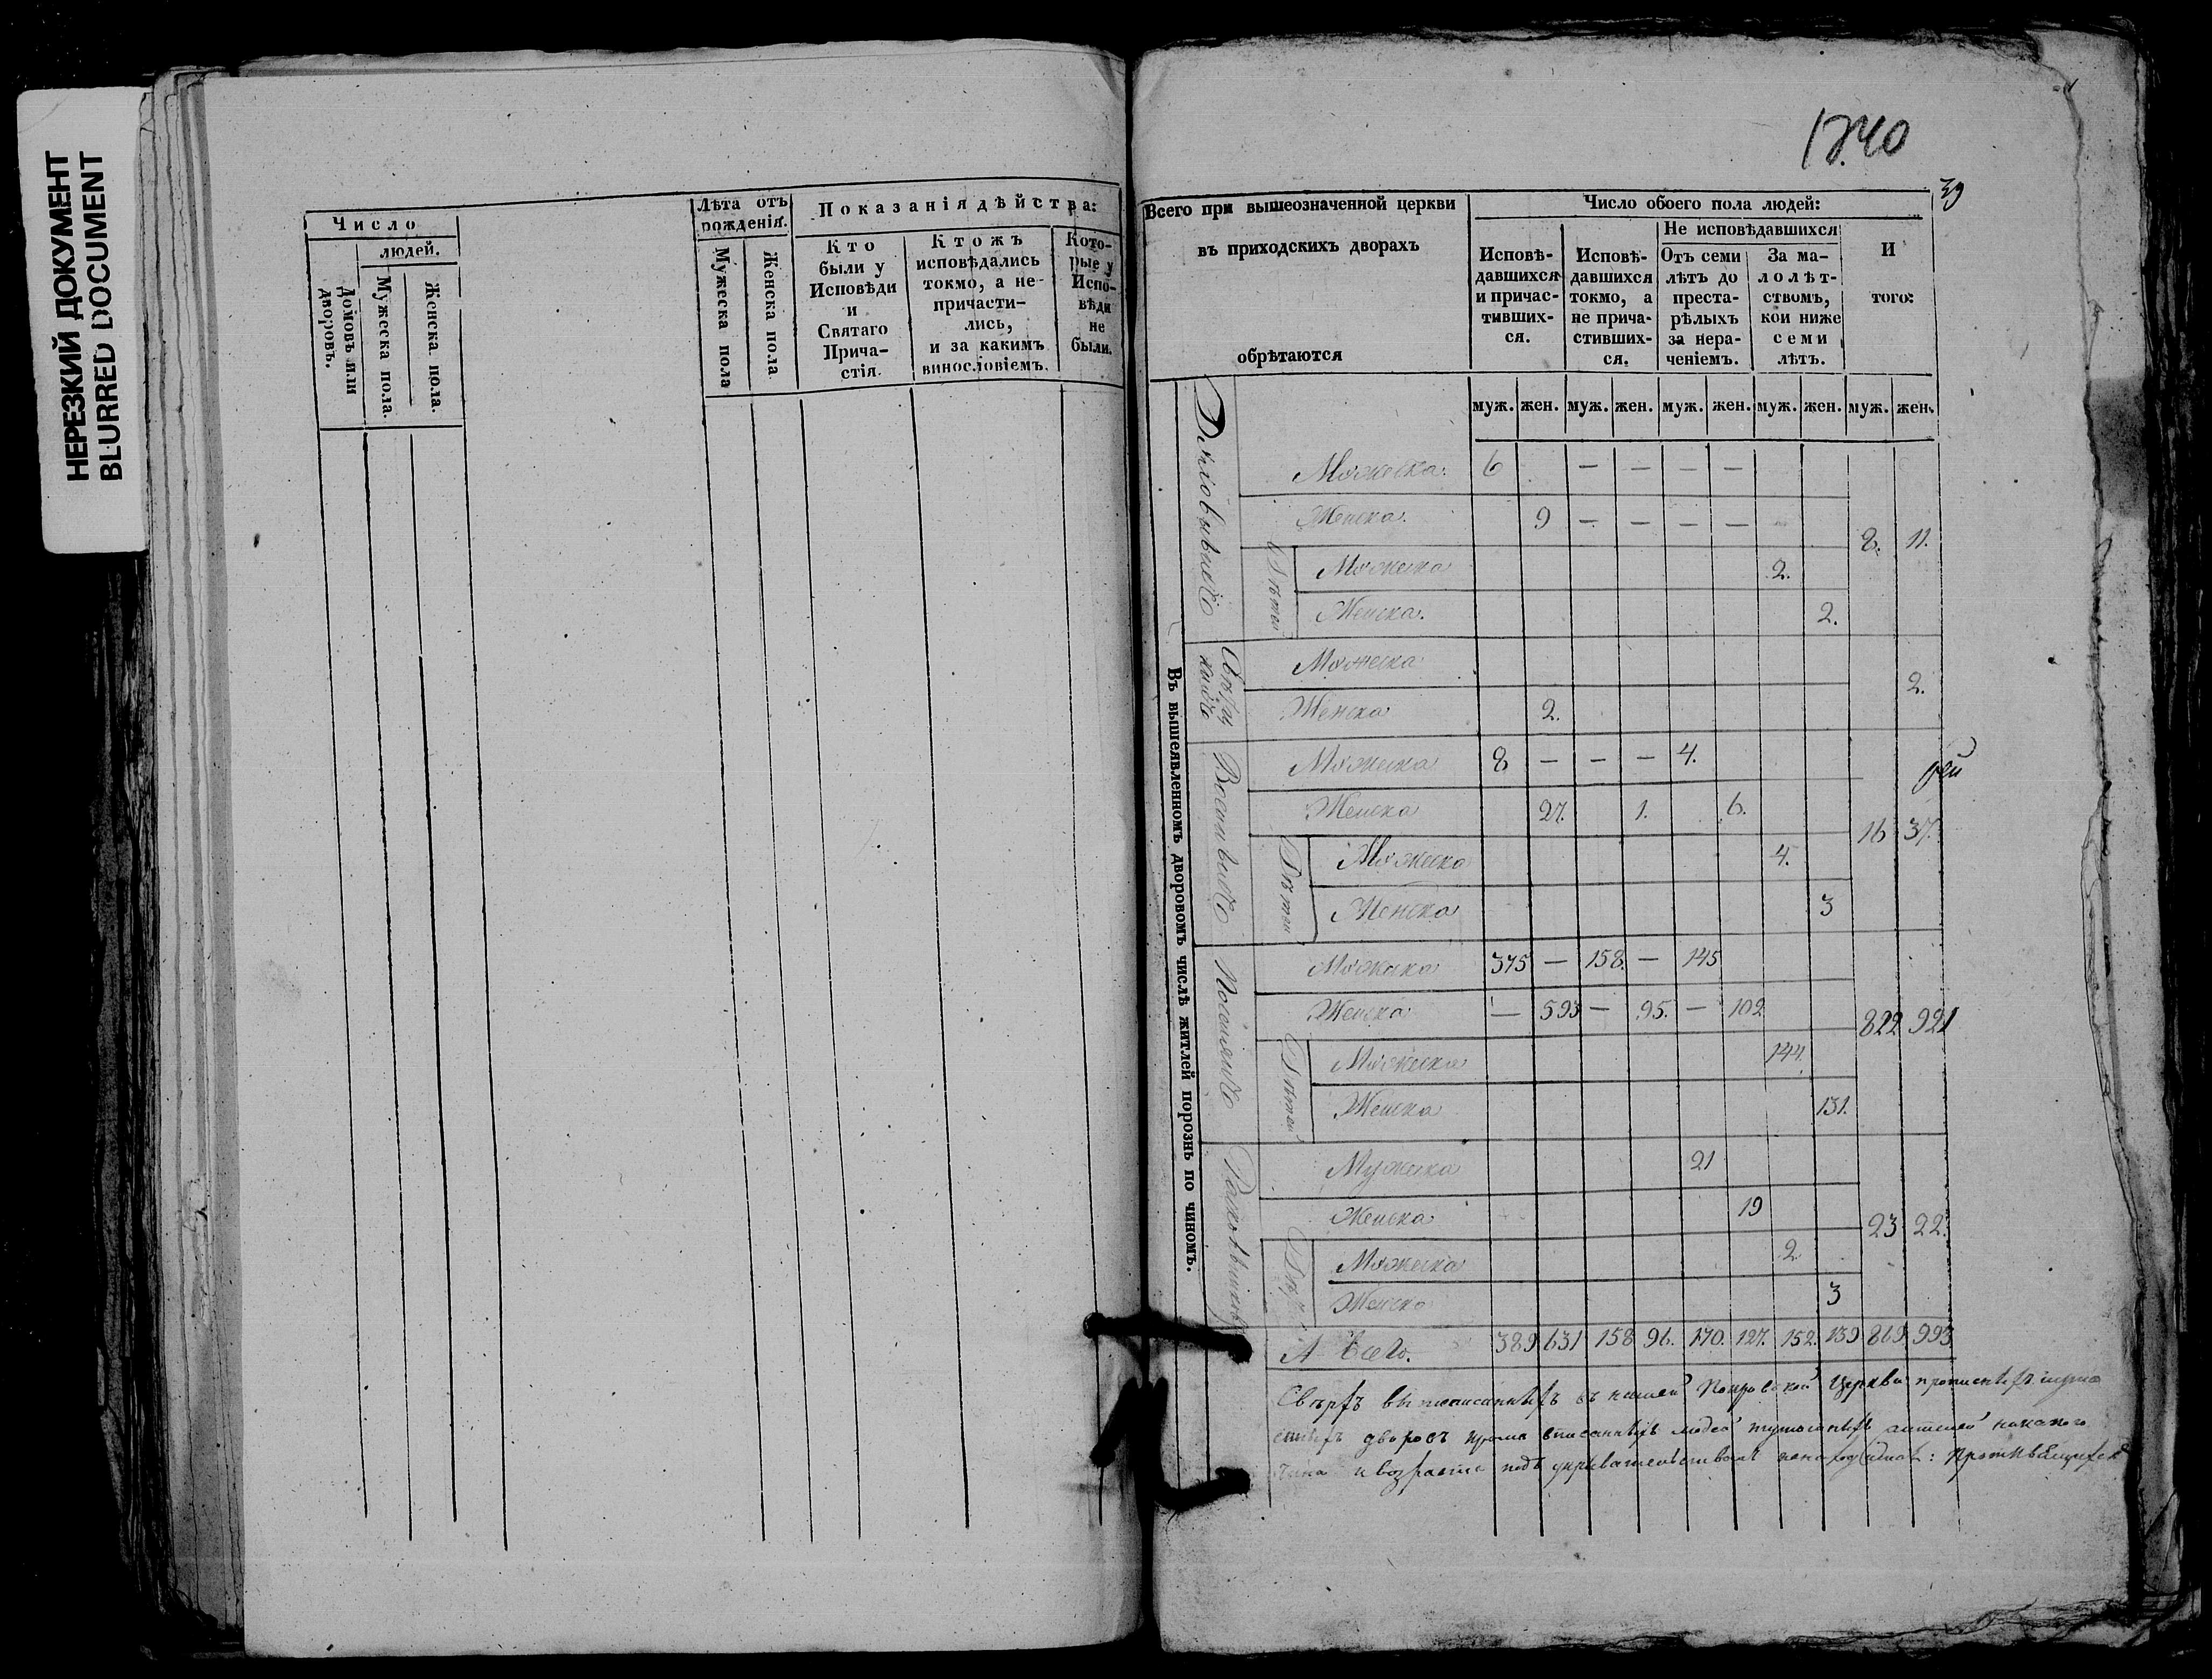 НЕРЕЗКИЙ ДОКУМЕНТ
BLURRED DOCUMENT
Число
людей.
Домовъ или дворовъ.
Мужеска пола.
Женска пола.
Лѣта отъ рожденія.
Мужеска пола
Женска пола.
Показанія дѣйства:
Кто были у Исповѣди и Святаго Прича-стія.
Ктожъ исповѣдались токмо, а не причасти-лись, и за какимъ винословіемъ.
Кото-рые у Испо-вѣди не были.
1840
39
Всего при вышеозначенной церкви
въ приходскихъ дворахъ
обрѣтаются
Число обоего пола людей:
Исповѣ-давшихся и причас-тивших-ся.
Исповѣ-давшихся токмо, а не прича-стивших-ся.
Не исповѣдавшихся
Отъ семи лѣтъ до преста-рѣлыхъ за нера-ченіемъ.
За ма-лолѣт-ствомъ, кои ниже семи лѣтъ.
И того:
муж. жен. муж. жен. муж. жен. муж. жен. муж. жен.
Въ вышеявленномъ дворовомъ числѣ житлей порознь по чиномъ.
Мужеска. 6 — — — —
Женска. 9 — — — —
8. 11.
Дѣтей
Мужеска 2.
Женска. 2.
Мужеска
2.
Женска 2.
Военныхъ
Мужеска 8 — — — 4.
Женска 27. 1. 6.
16 37.
Дѣтей
Мужеска 4.
Женска 3
Поселянъ
Мужеска 375 — 158. — 145
Женска — 593 — 95. — 102
822 921
Дѣтей
Мужеска 144.
Женска 131.
Раскольниковъ
Мужеска 21
Женска 19
23 22.
Дѣт.
Мужеска 2
Женска 3
А всего. 389 631 158 96. 170. 127. 152. 139 869. 993.
Сверхъ выписанныхъ въ нашей Покровской церкви
дворовъ кроме вписанныхъ людей
чина и возраста подъ